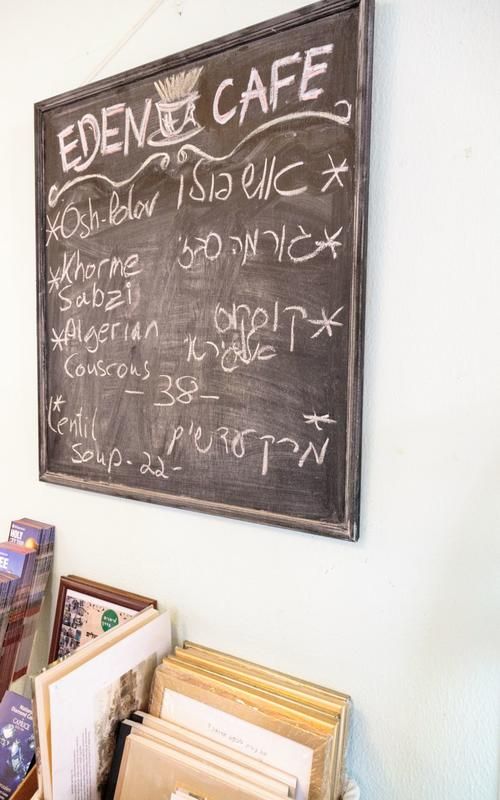 EDEN CAFE
*Osh-Polov
אוש פולו *
*Khorme
Sabzi
גורמה סבזי *
*Algerian
Couscous
קוסקוס *
אלג'יראי
- 38 -
*Lentil
Soup - 22 -
*
מרק עדשים